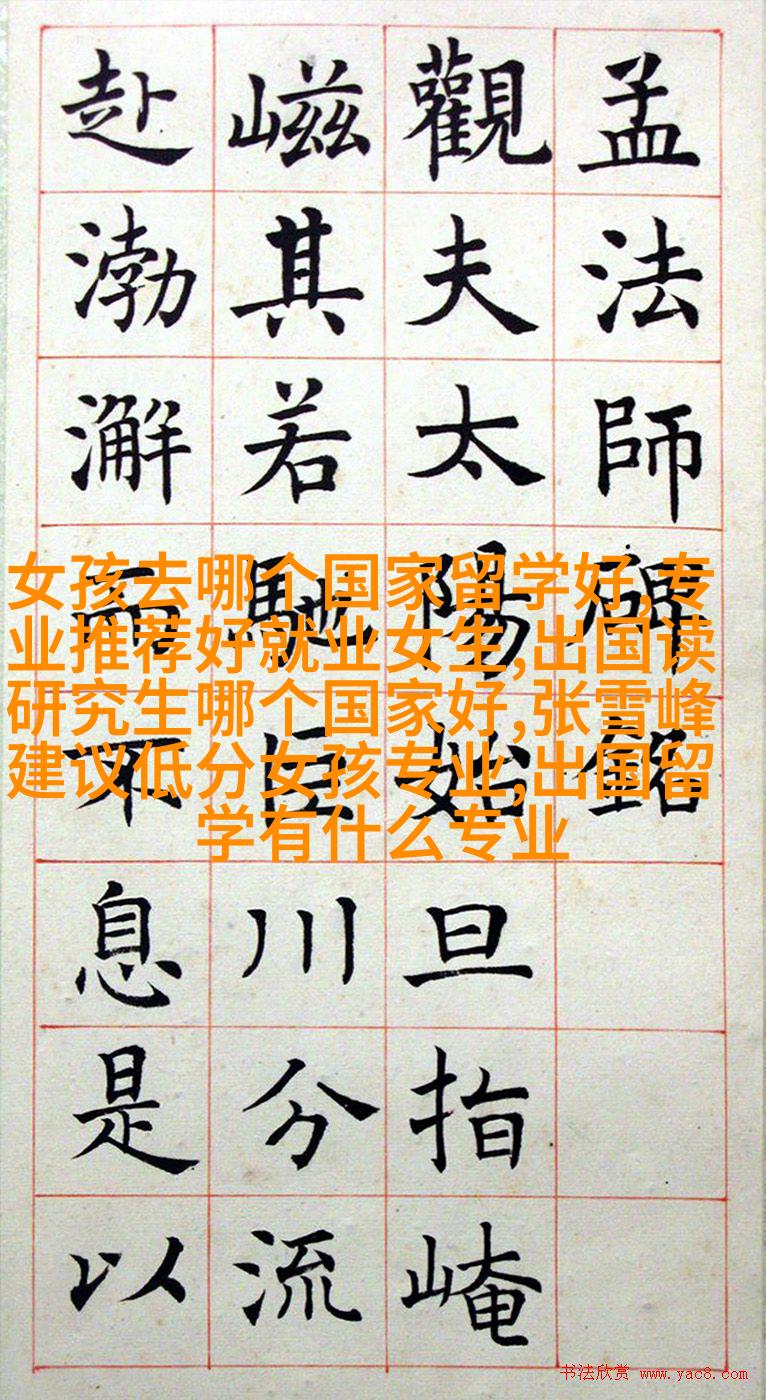 孟法師碑銘
觀夫太陽始旦指崦
嵫其若馳巨川分流
赴渤澥而不息是以
女孩去哪个国家留学好,专
业推荐好就业女生,出国读
研究生哪个国家好,张雪峰
建议低分女孩专业,出国留
学有什么专业
书法欣赏 www.yac8.com